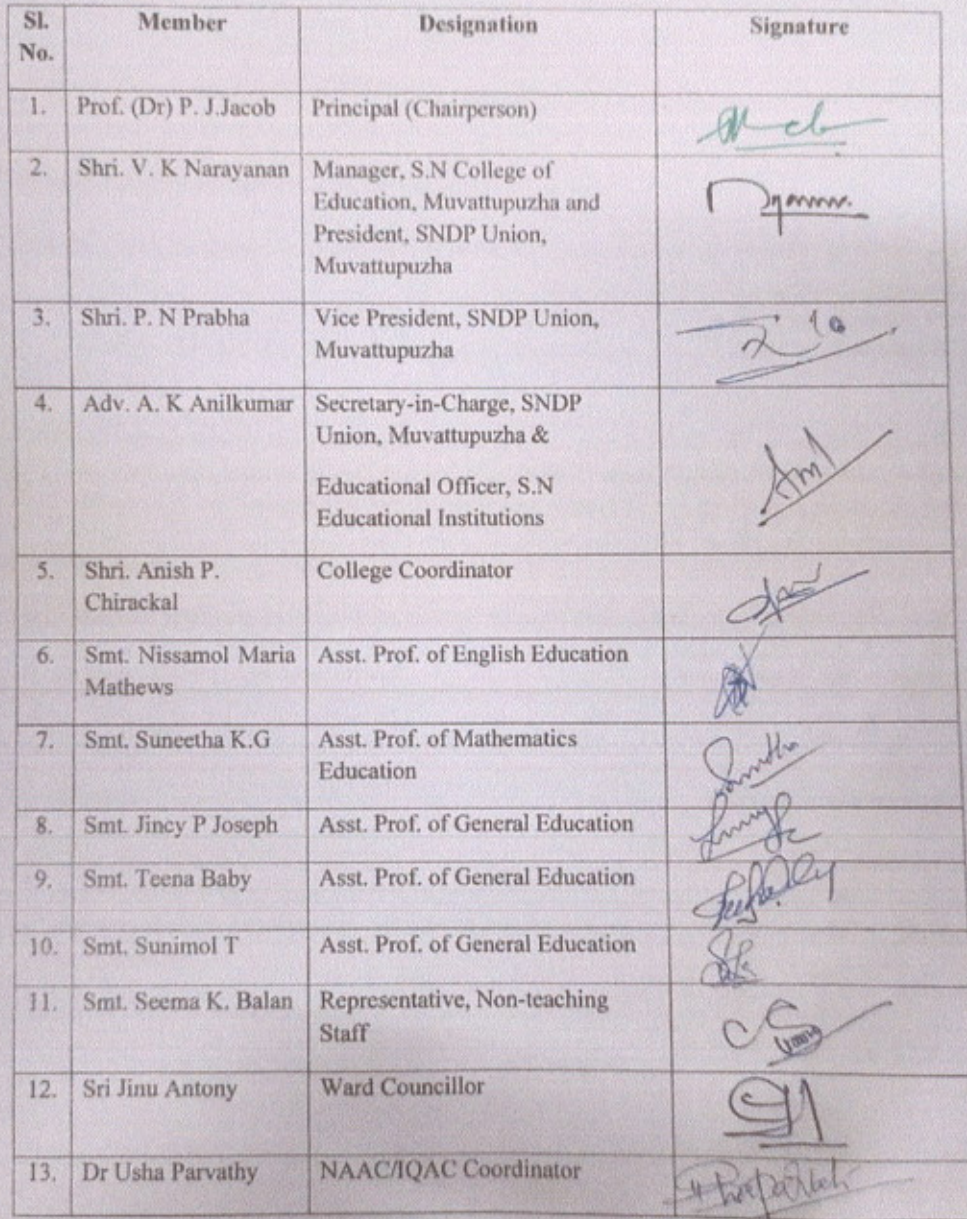 Sl. Member Designation Signature
No.
1. Prof. (Dr) P. J.Jacob Principal (Chairperson)
2. Shri. V. K Narayanan Manager, S.N College of
Education, Muvattupuzha and
President, SNDP Union,
Muvattupuzha
3. Shri. P. N Prabha Vice President, SNDP Union,
Muvattupuzha
4. Adv. A. K Anilkumar Secretary-in-Charge, SNDP
Union, Muvattupuzha &
Educational Officer, S.N
Educational Institutions
5. Shri. Anish P. College Coordinator
Chirackal
6. Smt. Nissamol Maria Asst. Prof. of English Education
Mathews
7. Smt. Suneetha K.G Asst. Prof. of Mathematics
Education
8. Smt. Jincy P Joseph Asst. Prof. of General Education
9. Smt. Teena Baby Asst. Prof. of General Education
10. Smt. Sunimol T Asst. Prof. of General Education
11. Smt. Seema K. Balan Representative, Non-teaching
Staff
12. Sri Jinu Antony Ward Councillor
13. Dr Usha Parvathy NAAC/IQAC Coordinator